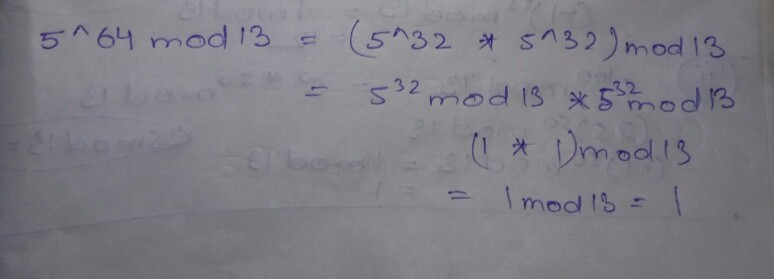 5^64 mod 13 = (5^32 * 5^32) mod 13
= 5³² mod 13 * 5³² mod 13
(1 * 1) mod 13
= 1 mod 13 = 1